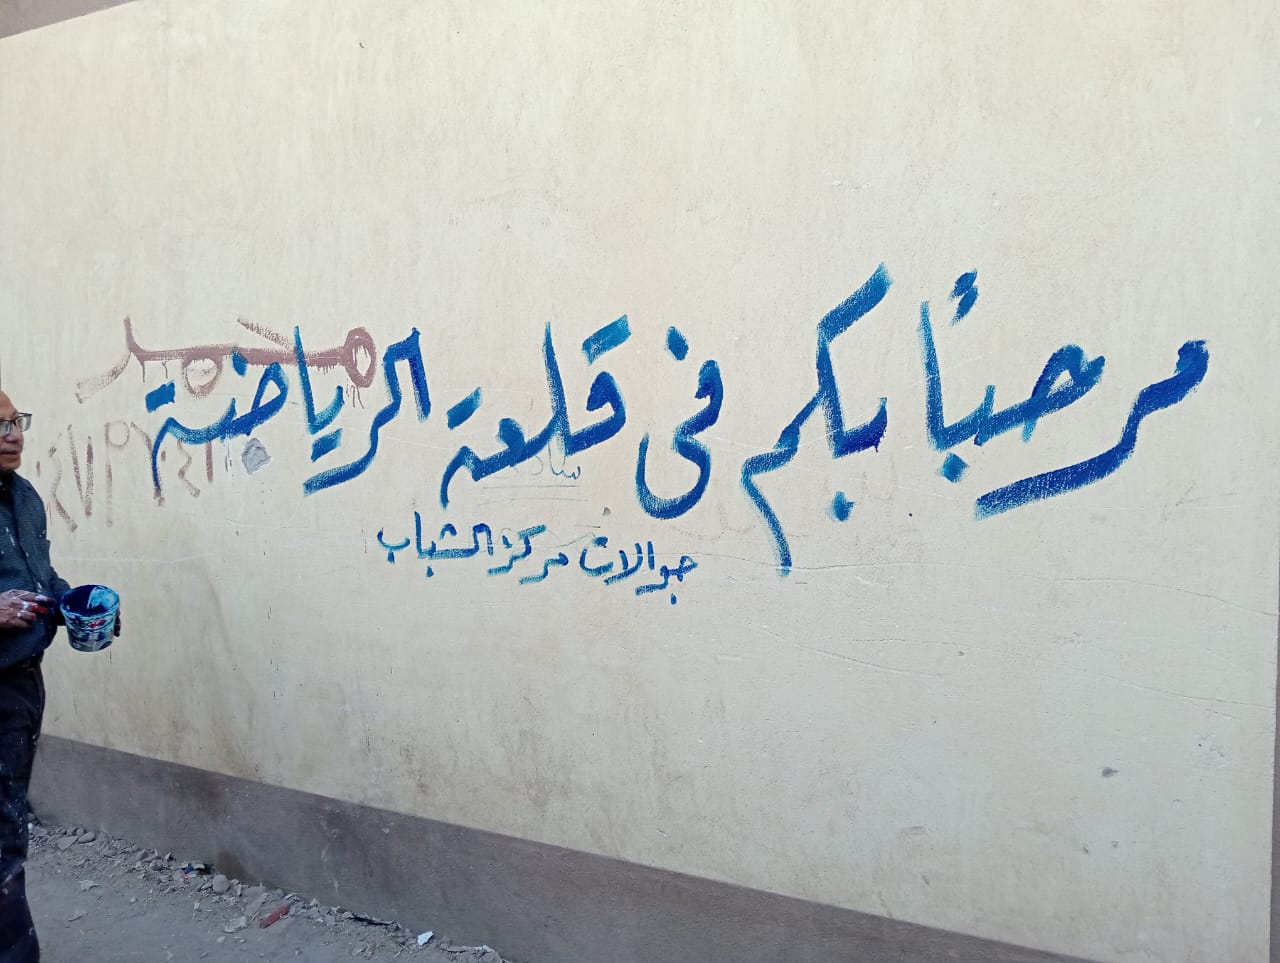 مرحباً بكم فى قلعة الرياضة
جوالات مركز الشباب